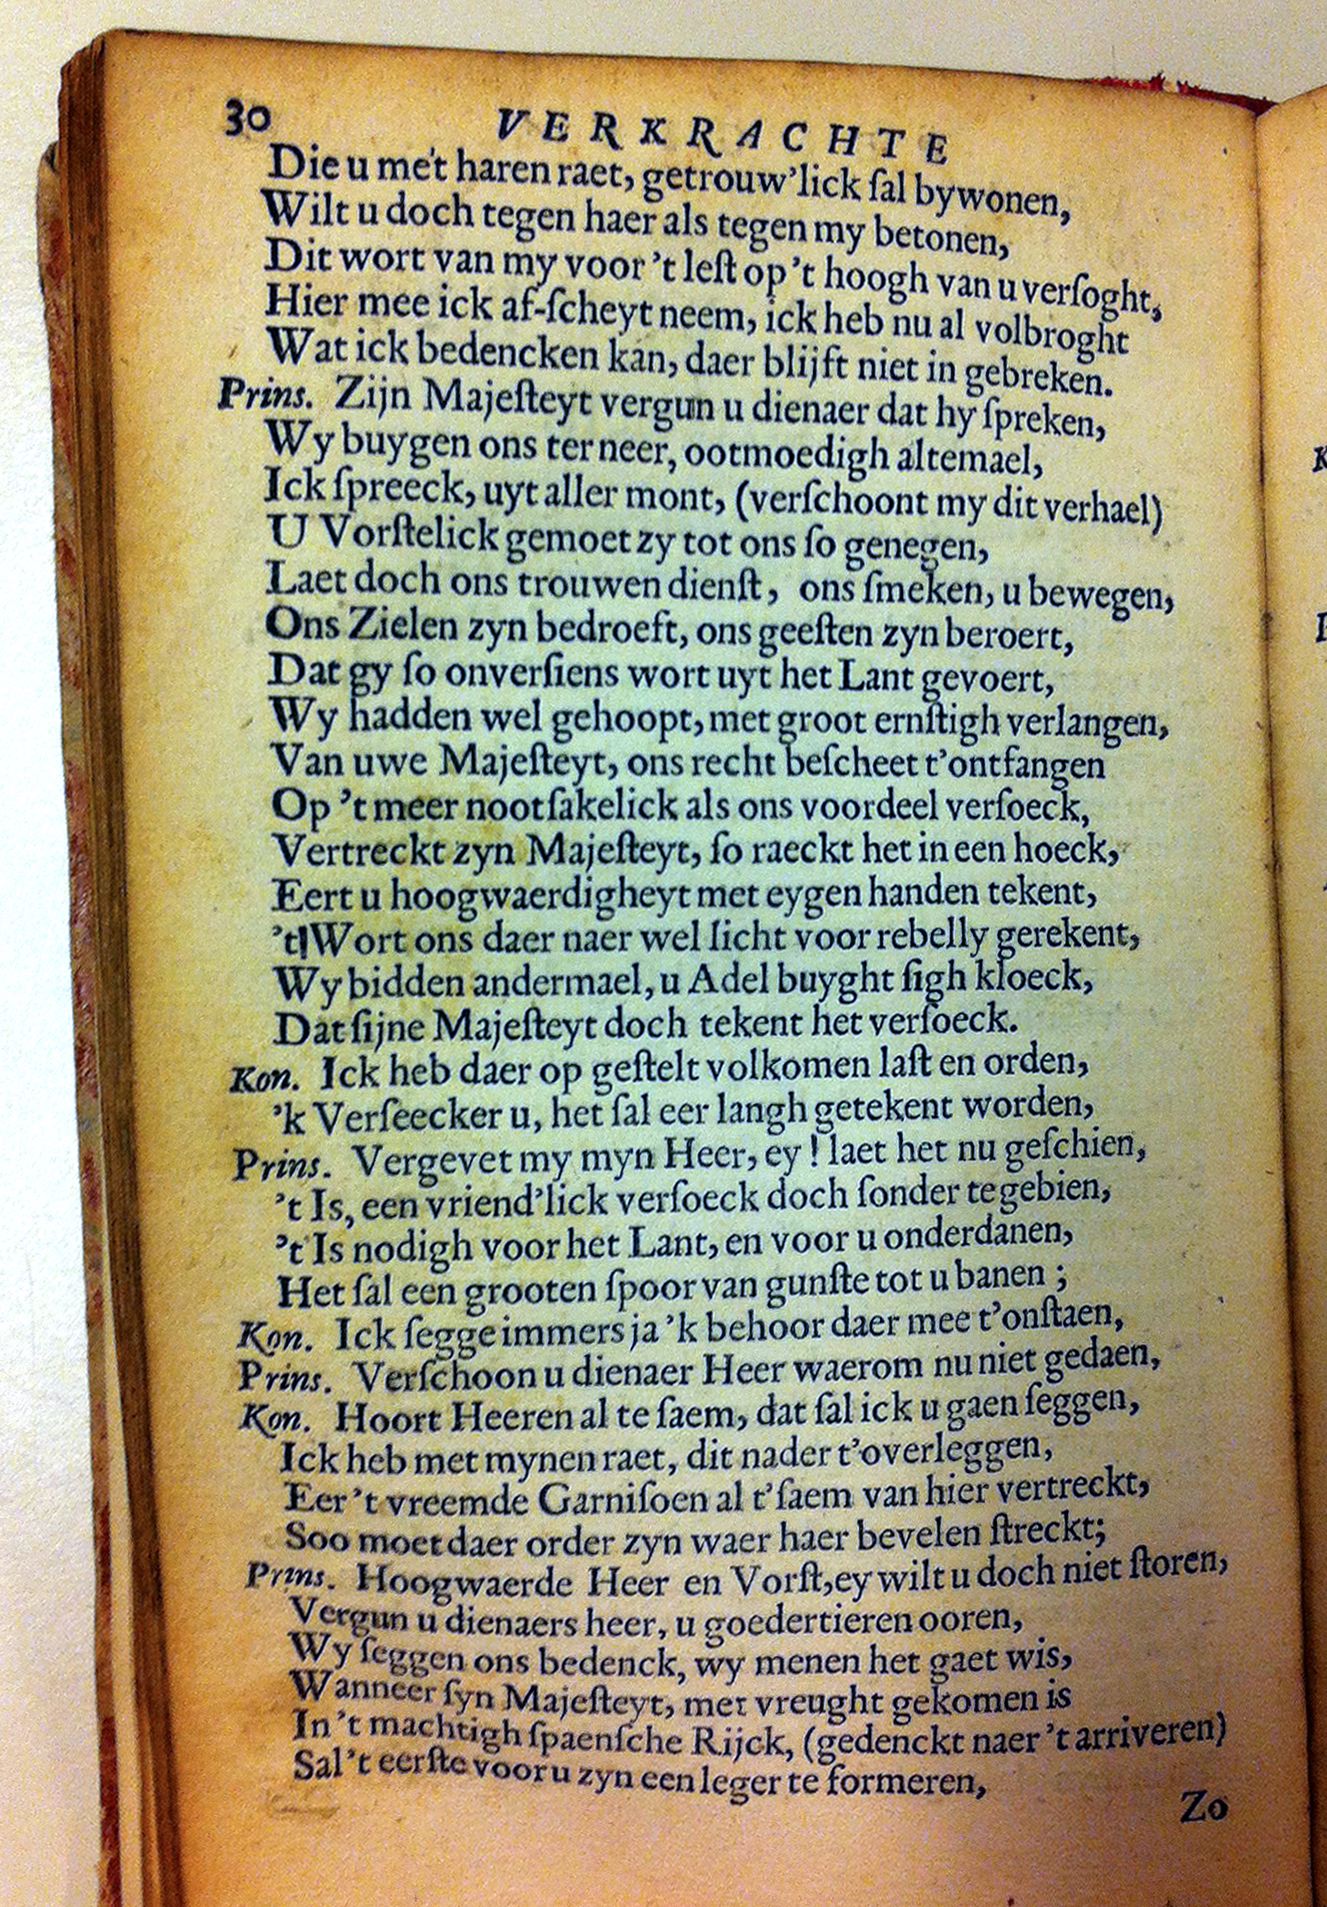 30 VERKRACHTE
Die u me't haren raet, getrouw'lick ſal bywonen,
Wilt u doch tegen haer als tegen my betonen,
Dit wort van my voor 't leſt op 't hoogh van u verſoght,
Hier mee ick af-ſcheyt neem, ick heb nu al volbroght
Wat ick bedencken kan, daer blijft niet in gebreken.
Prins. Zijn Majeſteyt vergun u dienaer dat hy ſpreken,
Wy buygen ons ter neer, ootmoedigh altemael,
Ick ſpreeck, uyt aller mont, (verſchoont my dit verhael)
U Vorſtelick gemoet zy tot ons ſo genegen,
Laet doch ons trouwen dienſt, ons ſmeken, u bewegen,
Ons Zielen zyn bedroeft, ons geeſten zyn beroert,
Dat gy ſo onverſiens wort uyt het Lant gevoert,
Wy hadden wel gehoopt, met groot ernſtigh verlangen,
Van uwe Majeſteyt, ons recht beſcheet t'ontfangen
Op 't meer nootſakelick als ons voordeel verſoeck,
Vertreckt zyn Majeſteyt, ſo raeckt het in een hoeck,
Eert u hoogwaerdigheyt met eygen handen tekent,
't Wort ons daer naer wel licht voor rebelly gerekent,
Wy bidden andermael, u Adel buyght ſigh kloeck,
Dat ſijne Majeſteyt doch tekent het verſoeck.
Kon. Ick heb daer op geſtelt volkomen laſt en orden,
'k Verſeecker u, het ſal eer langh getekent worden,
Prins. Vergevet my myn Heer, ey! laet het nu geſchien,
't Is, een vriend'lick verſoeck doch ſonder te gebien,
't Is nodigh voor het Lant, en voor u onderdanen,
Het ſal een grooten ſpoor van gunſte tot u banen;
Kon. Ick ſegge immers ja 'k behoor daer mee t'onſtaen,
Prins. Verſchoon u dienaer Heer waerom nu niet gedaen,
Kon. Hoort Heeren al te ſaem, dat ſal ick u gaen ſeggen,
Ick heb met mynen raet, dit nader t'overleggen,
Eer 't vreemde Garniſoen al t'ſaem van hier vertreckt,
Soo moet daer order zyn waer haer bevelen ſtreckt;
Prins. Hoogwaerde Heer en Vorſt, ey wilt u doch niet ſtoren,
Vergun u dienaers heer, u goedertieren ooren,
Wy ſeggen ons bedenck, wy menen het gaet wis,
Wanneer ſyn Majeſteyt, met vreught gekomen is
In 't machtigh ſpaenſche Rijck, (gedenckt naer 't arriveren)
Sal 't eerſte voor u zyn een leger te formeren,
Zo